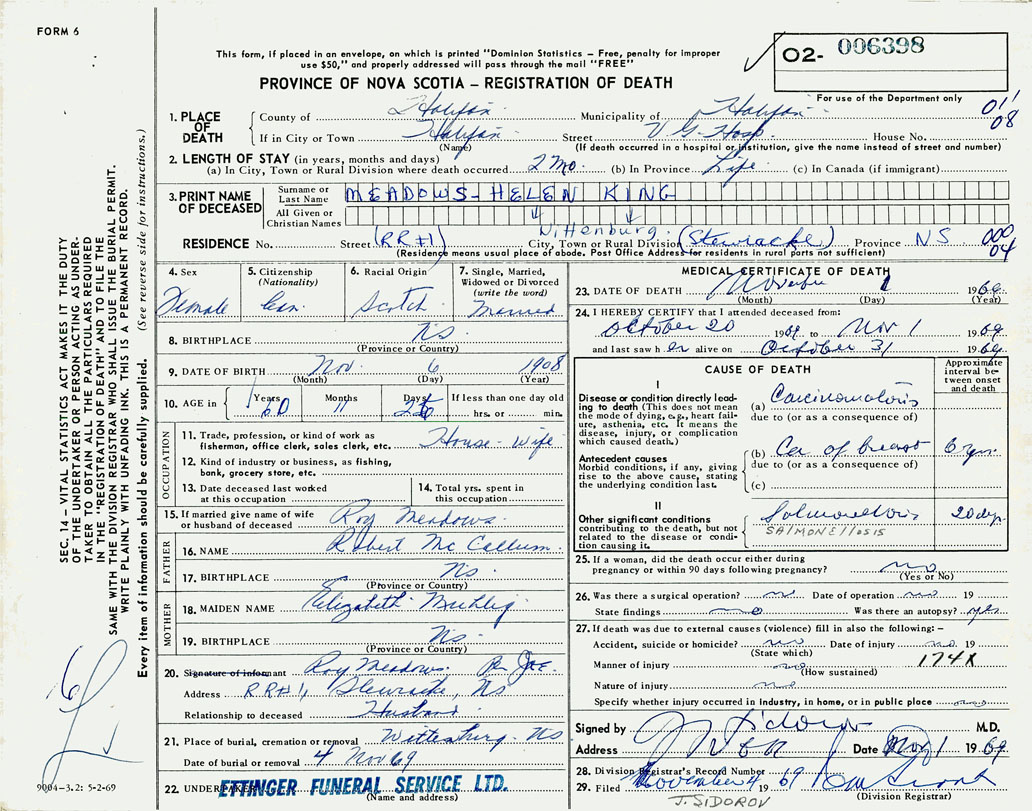 FORM 6
This form, if placed in an envelope, on which is printed "Dominion Statistics – Free, penalty for improper
use $50," and properly addressed will pass through the mail "FREE"
PROVINCE OF NOVA SCOTIA – REGISTRATION OF DEATH
02- 006398
For use of the Department only
011
08
1. PLACE OF DEATH
County of Halifax Municipality of Halifax
If in City or Town Halifax Street V G Hosp. House No.
(Name) (If death occurred in a hospital or institution, give the name instead of street and number)
2. LENGTH OF STAY (in years, months and days)
(a) In City, Town or Rural Division where death occurred 2 mo (b) In Province Life (c) In Canada (if immigrant)
3. PRINT NAME OF DECEASED
Surname or Last Name MEADOWS- HELEN KING
All Given or Christian Names
Wittenburg.
RESIDENCE No. Street (RR#1) City, Town or Rural Division (Stewiacke) Province NS 000
04
(Residence means usual place of abode. Post Office Address for residents in rural parts not sufficient)
4. Sex Female
5. Citizenship (Nationality) Can
6. Racial Origin Scotch
7. Single, Married, Widowed or Divorced (write the word) Married
8. BIRTHPLACE NS
(Province or Country)
9. DATE OF BIRTH Nov. 6 1908
(Month) (Day) (Year)
10. AGE in Years 60 Months 11 Days If less than one day old hrs. or min.
OCCUPATION
11. Trade, profession, or kind of work as fisherman, office clerk, sales clerk, etc. House-Wife
12. Kind of industry or business, as fishing, bank, grocery store, etc.
13. Date deceased last worked at this occupation
14. Total yrs. spent in this occupation
15. If married give name of wife or husband of deceased Roy Meadows.
FATHER
16. NAME Robert McCallum.
17. BIRTHPLACE NS.
(Province or Country)
MOTHER
18. MAIDEN NAME Elizabeth
19. BIRTHPLACE NS.
(Province or Country)
20. Signature of informant Roy Meadows. Per
Address RR#1, Stewiacke, NS
Relationship to deceased Husband
21. Place of burial, cremation or removal Wittenburg. NS
Date of burial or removal 4 Nov 69
22. UNDERTAKER ETTINGER FUNERAL SERVICE LTD.
(Name and address)
MEDICAL CERTIFICATE OF DEATH
23. DATE OF DEATH November 1 1969
(Month) (Day) (Year)
24. I HEREBY CERTIFY that I attended deceased from:
October 20 1969 to Nov 1 1969
and last saw her alive on October 31 1969
CAUSE OF DEATH
Approximate interval between onset and death
I
Disease or condition directly leading to death (This does not mean the mode of dying, e.g., heart failure, asthenia, etc. It means the disease, injury, or complication which caused death.)
(a) Carcinomatosis
due to (or as a consequence of)
Antecedent causes
Morbid conditions, if any, giving rise to the above cause, stating the underlying condition last.
(b) Ca of breast 6 yrs.
due to (or as a consequence of)
(c)
II
Other significant conditions contributing to the death, but not related to the disease or condition causing it.
Salmonellosis 20 dys.
SALMONELLOSIS
25. If a woman, did the death occur either during pregnancy or within 90 days following pregnancy? no
(Yes or No)
26. Was there a surgical operation? no Date of operation no 19
State findings no Was there an autopsy? yes
27. If death was due to external causes (violence) fill in also the following:–
Accident, suicide or homicide? no Date of injury no 19
(State which) 174X
Manner of injury no
(How sustained)
Nature of injury no
Specify whether injury occurred in industry, in home, or in public place
Signed by J Sidorov M.D.
Address Date Nov 1 1969
28. Division Registrar's Record Number
29. Filed November 4 1969
J. SIDOROV (Division Registrar)
SEC. 14 – VITAL STATISTICS ACT MAKES IT THE DUTY
OF THE UNDERTAKER OR PERSON ACTING AS UNDER-
TAKER TO OBTAIN ALL THE PARTICULARS REQUIRED
IN THE "REGISTRATION OF DEATH" AND TO FILE THE
SAME WITH THE DIVISION REGISTRAR WHO SHALL ISSUE THE BURIAL PERMIT.
WRITE PLAINLY WITH UNFADING INK. THIS IS A PERMANENT RECORD.
Every item of information should be carefully supplied. (See reverse side for instructions.)
9004-3.2: 5-2-69